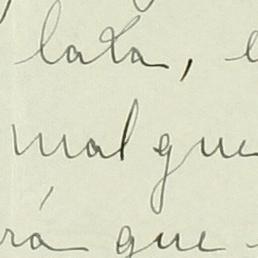 lata,
mal que
rá que